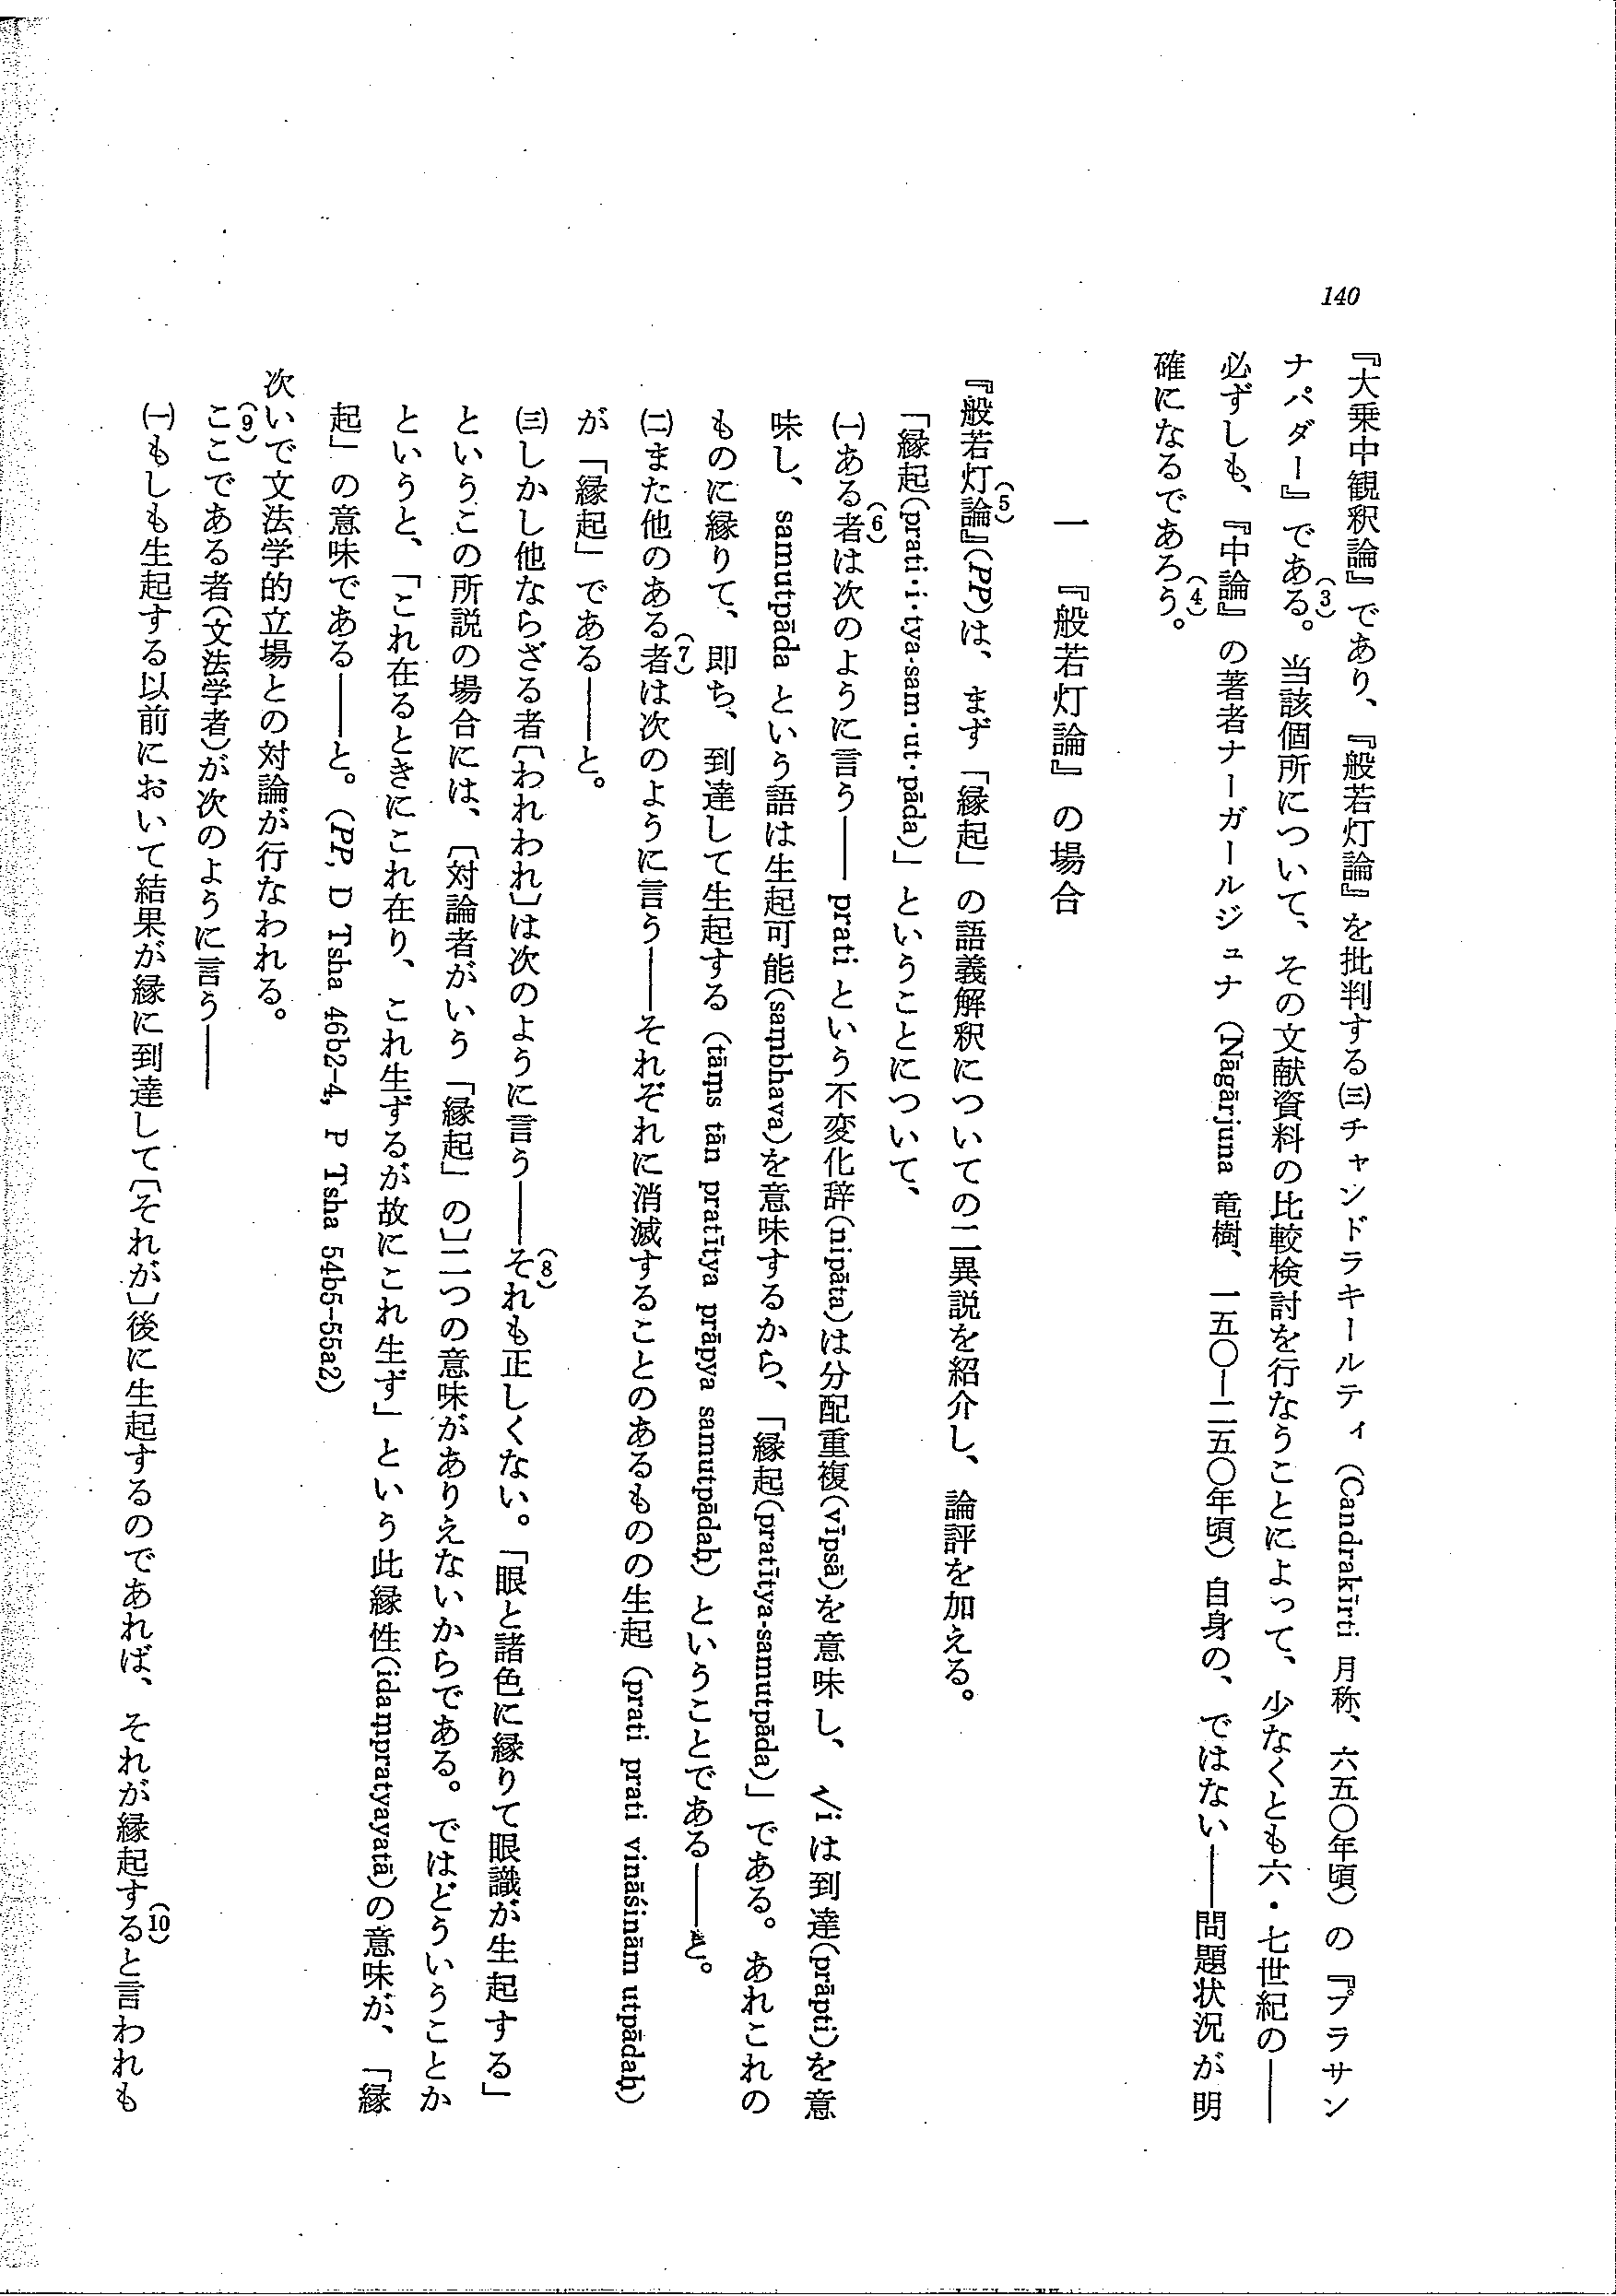 140
『大乗中観釈論』であり、『般若灯論』を批判する㈢チャンドラキールティ（Candrakīrti 月称、六五〇年頃）の『プラサン
ナパダー』である(3)。当該個所について、その文献資料の比較検討を行なうことによって、少なくとも六・七世紀の――
必ずしも、『中論』の著者ナーガールジュナ（Nāgārjuna 竜樹、一五〇―二五〇年頃）自身の、ではない――問題状況が明
確になるであろう(4)。
一　『般若灯論』の場合
『般若灯論』(5)(PP)は、まず「縁起」の語義解釈についての二異説を紹介し、論評を加える。
「縁起(prati・i・tya-sam・ut・pāda)」ということについて、
㈠ある者(6)は次のように言う――prati という不変化辞(nipāta)は分配重複(vīpsā)を意味し、√i は到達(prāpti)を意
味し、samutpāda という語は生起可能(saṃbhava)を意味するから、「縁起(pratītya-samutpāda)」である。あれこれの
ものに縁りて、即ち、到達して生起する（tāṃs tān pratītya prāpya samutpādaḥ）ということである――と。
㈡また他のある者(7)は次のように言う――それぞれに消滅することのあるものの生起（prati prati vināśinām utpādaḥ）
が「縁起」である――と。
㈢しかし他ならざる者〔われわれ〕は次のように言う――それ(8)も正しくない。「眼と諸色に縁りて眼識が生起する」
というこの所説の場合には、〔対論者がいう「縁起」の〕二つの意味がありえないからである。ではどういうことか
というと、「これ在るときにこれ在り、これ生ずるが故にこれ生ず」という此縁性(idaṃpratyayatā)の意味が、「縁
起」の意味である――と。(PP, D Tsha 46b2-4, P Tsha 54b5-55a2)
次いで文法学的立場との対論が行なわれる。
ここ(9)である者(文法学者)が次のように言う――
㈠もしも生起する以前において結果が縁に到達して〔それが〕後に生起するのであれば、それが縁起する(10)と言われも